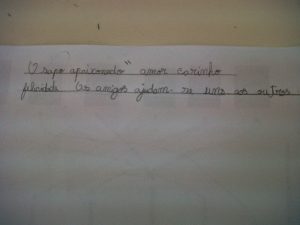 O sapo apaixonado" amor carinho
filicidade Os amigos ajudam-se uns aos outros